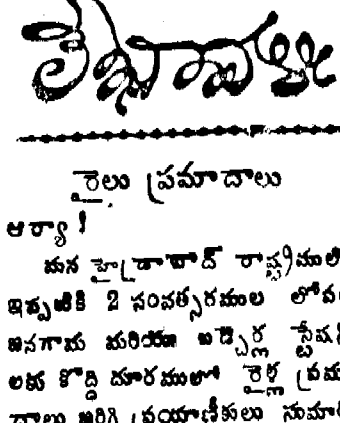 లేఖావళి
రైలు ప్రమాదాలు
ఆర్యా !
మన హైద్రాబాద్ రాష్ట్రములో
ఇప్పటికి 2 సంవత్సరముల లోప
జనగామ మరియు జడ్చెర్ల స్టేష
లకు కొద్ది దూరములో రైళ్ల ప్రమ
దాలు జరిగి ప్రయాణీకులు సుమా